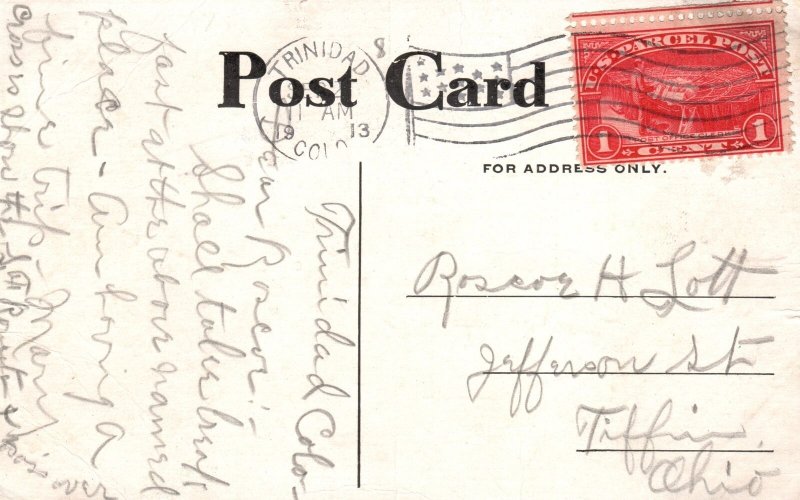 Post Card
TRINIDAD
11 AM
19 13
COLO
8
U.S. PARCEL POST
POST OFFICE CLERK
1 CENT 1
FOR ADDRESS ONLY.
Trinidad Colo-
Dear Roscoe:-
Shall take breakfast
fast at the above named
place - Am having a
fine trip - Mary
Cross shows the
over
Roscoe H Lott
Jefferson St
Tiffin,
Ohio